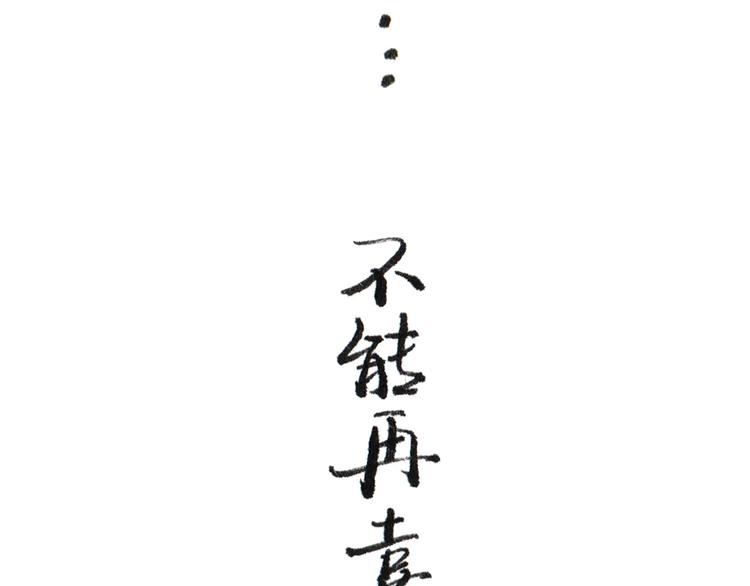 …不能再